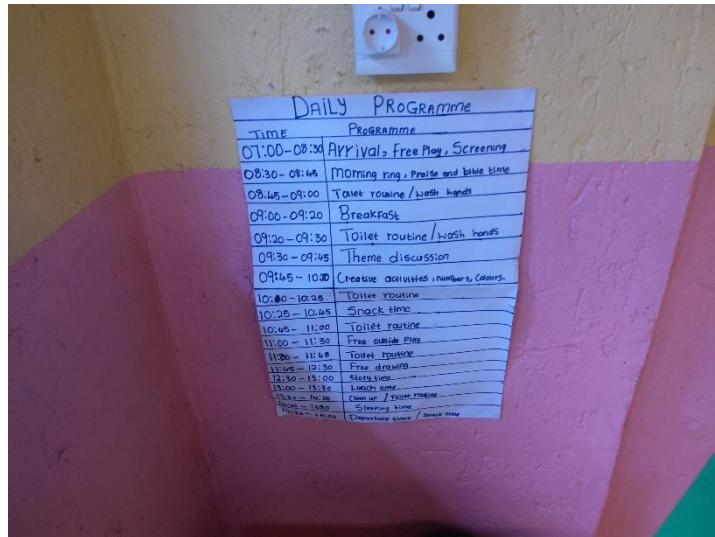 DAILY PROGRAMME
TIME PROGRAMME
07:00-08:30 Arrival, Free Play, Screening
08:30-08:45 Morning ring, Praise and bible time
08:45-09:00 Toilet routine / wash hands
09:00-09:20 Breakfast
09:20-09:30 Toilet routine / wash hands
09:30-09:45 Theme discussion
09:45-10:20 Creative activities, numbers, Colours.
10:00-10:25 Toilet routine
10:25-10:45 Snack time
10:45-11:00 Toilet routine
11:00-11:30 Free outside Play
11:30-11:45 Toilet routine
11:45-12:30 Free drawing
12:30-13:00 Story time
13:00-13:30 Lunch time
13:30-14:00 Clean up / Toilet routine
14:00- Sleeping time
Departure time / Snack time